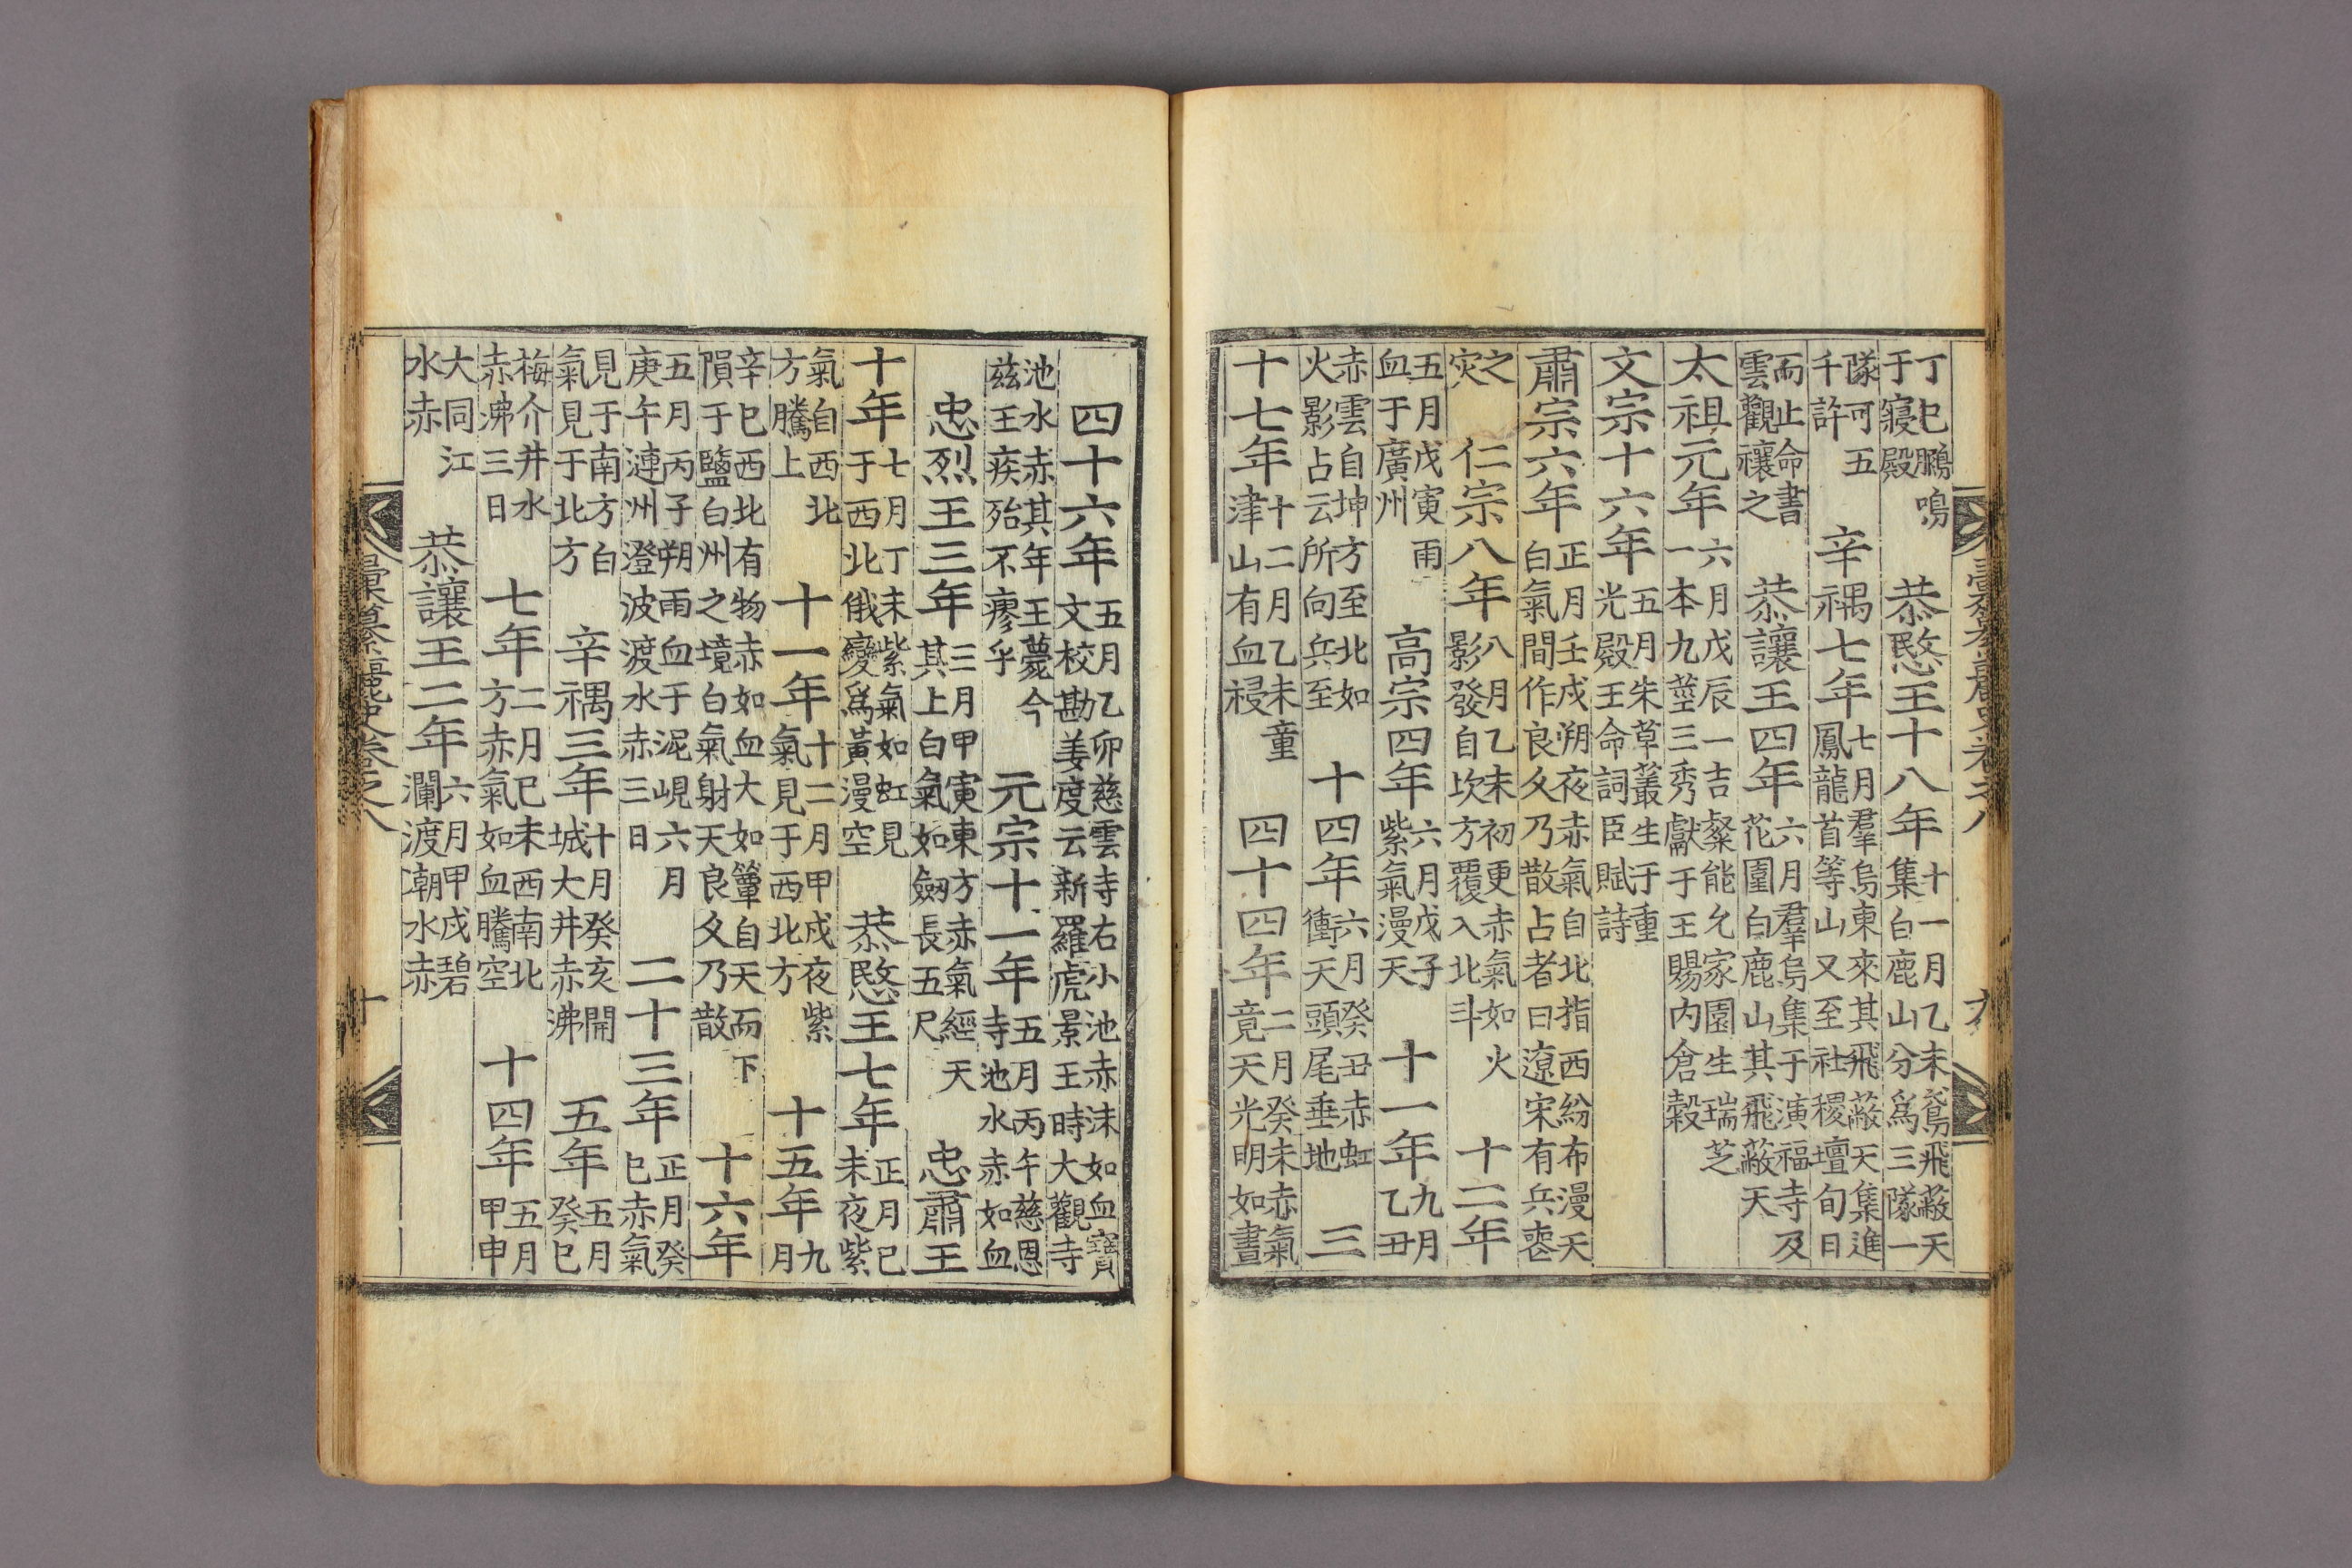 丁巳鵩鳴于寢殿 恭愍王十八年 十一月乙未鴉飛蔽天集白鹿山分爲三隊一
隊可五千許 辛禑七年 七月羣烏東來其飛蔽天集進鳳龍首等山又至社稷壇旬日
而止命書雲觀禳之 恭讓王四年 六月羣烏集于演福寺及花園白鹿山其飛蔽天
太祖元年 六月戊辰一吉粲能允家園生瑞芝一本九莖三秀獻于王賜內倉穀
文宗十六年 五月朱草叢生于重光殿王命詞臣賦詩
肅宗六年 正月壬戌朔夜赤氣自北指西紛布漫天白氣間作良久乃散占者曰遼宋有兵喪
之灾 仁宗八年 八月乙未初更赤氣如火影發自坎方覆入北斗 十二年
五月戊寅雨血于廣州 高宗四年 六月戊子紫氣漫天 十一年 九月乙丑
赤雲自坤方至北如火影占云所向兵至 十四年 六月癸丑赤虹衝天頭尾垂地 三
十七年 十二月乙未童津山有血祲 四十四年 二月癸未赤氣竟天光明如晝
四十六年 五月乙卯慈雲寺右小池赤沫如血寶文校勘姜度云新羅虎景王時大觀寺
池水赤其年王薨今兹王疾殆不瘳乎 元宗十一年 五月丙午慈恩寺池水赤如血
忠烈王三年 三月甲寅東方赤氣經天其上白氣如劒長五尺 忠肅王
十年 七月丁未紫氣如虹見于西北俄變爲黃漫空 恭愍王七年 正月己未夜紫
氣自西北方騰上 十一年 十二月甲戌夜紫氣見于西北方 十五年 九月
辛巳西北有物赤如血大如簞自天而下隕于鹽白州之境白氣射天良久乃散 十六年
五月丙子朔雨血于泥峴六月庚午漣州澄波渡水赤三日 二十三年 正月癸巳赤氣
見于南方白氣見于北方 辛禑三年 十月癸亥開城大井赤沸 五年 五月癸巳
梅介井水赤沸三日 七年 二月己未西南北方赤氣如血騰空 十四年 五月甲申
大同江水赤 恭讓王二年 六月甲戌碧瀾渡潮水赤
彙纂麗史卷之八 十